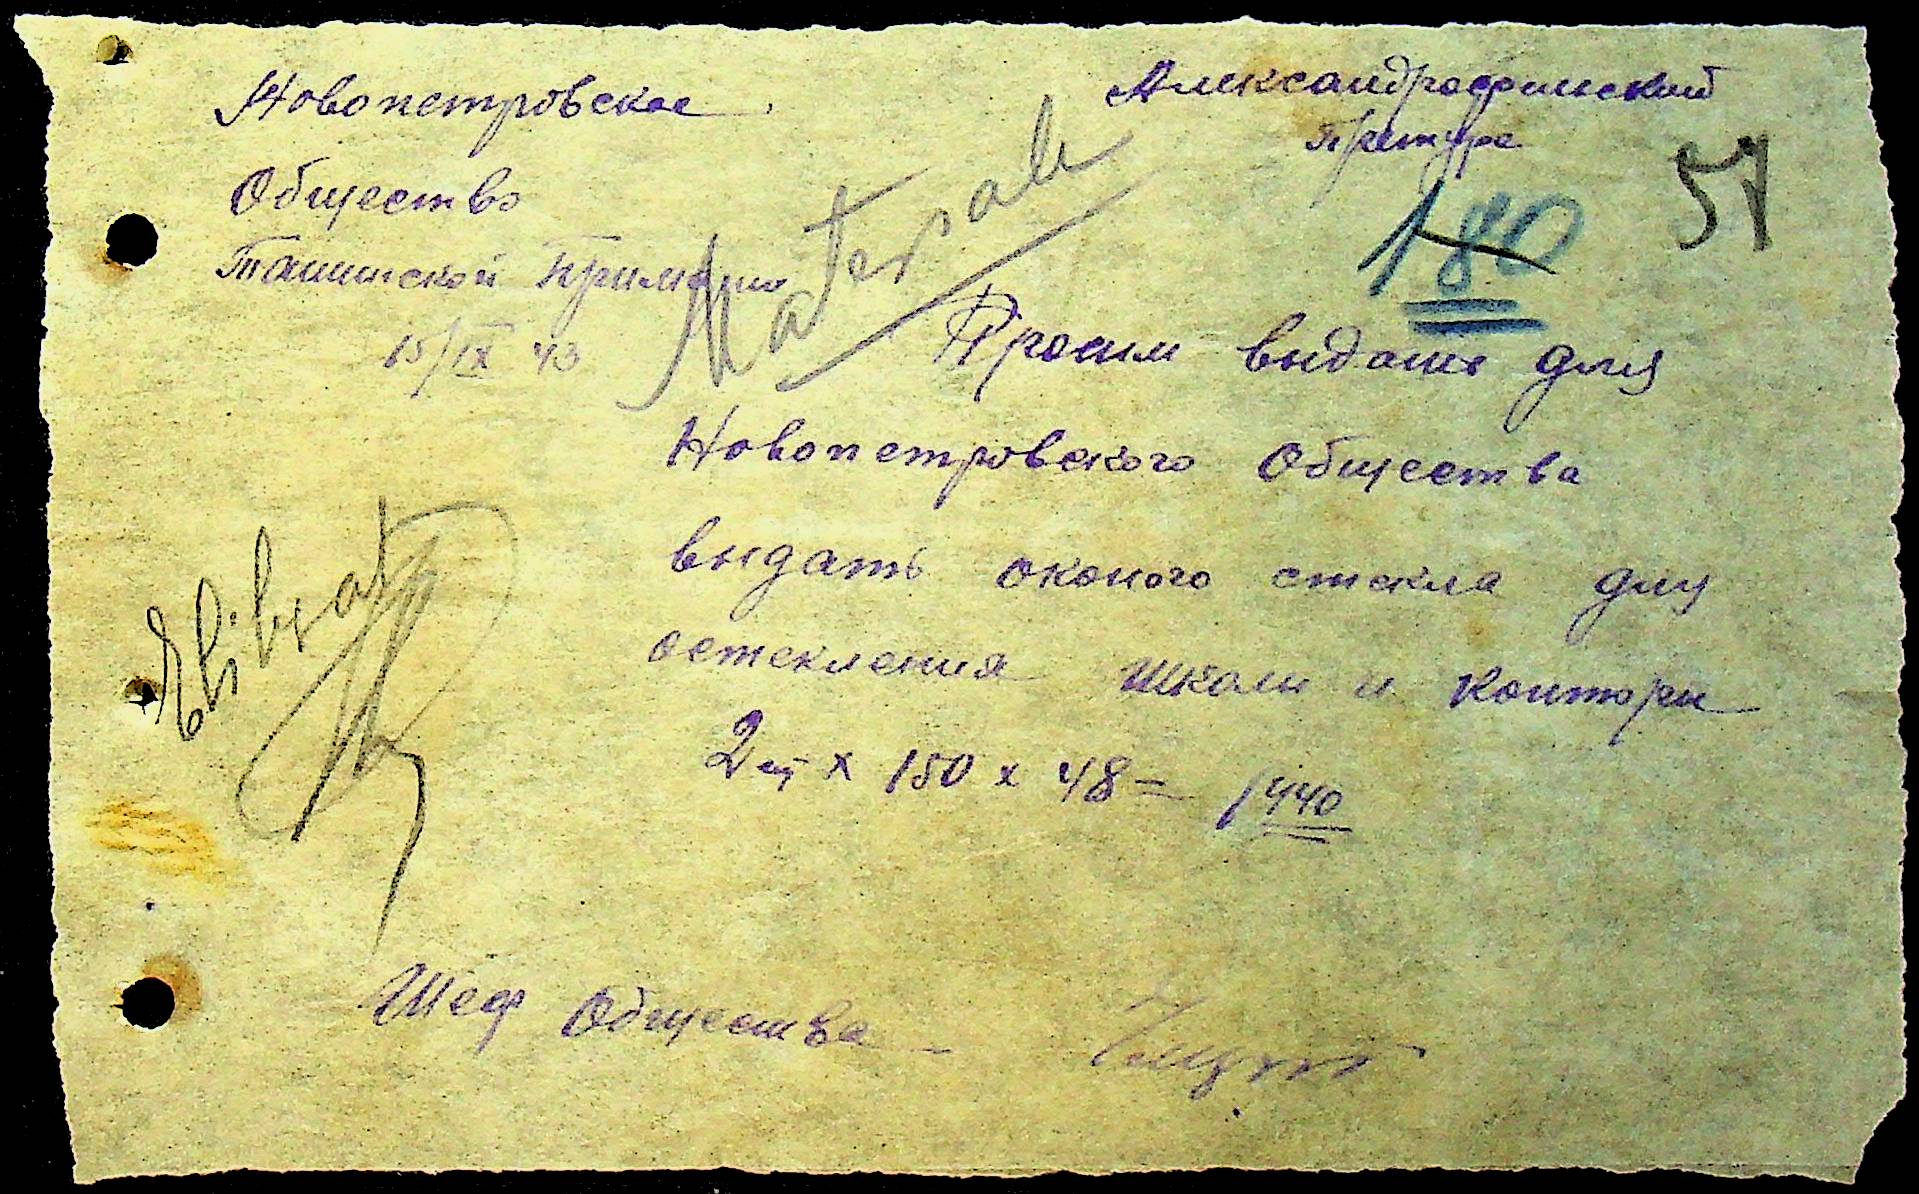 Новопетровское
Общество
Ташинской Примарии
15/IX 43
Александрфинский
Претуре
180
57
Materale
Просим выдать для
Новопетровского Общества
выдать оконого стекла для
остекления школы и конторы
2 × 150 × 48 = 1440
Шеф Общества –